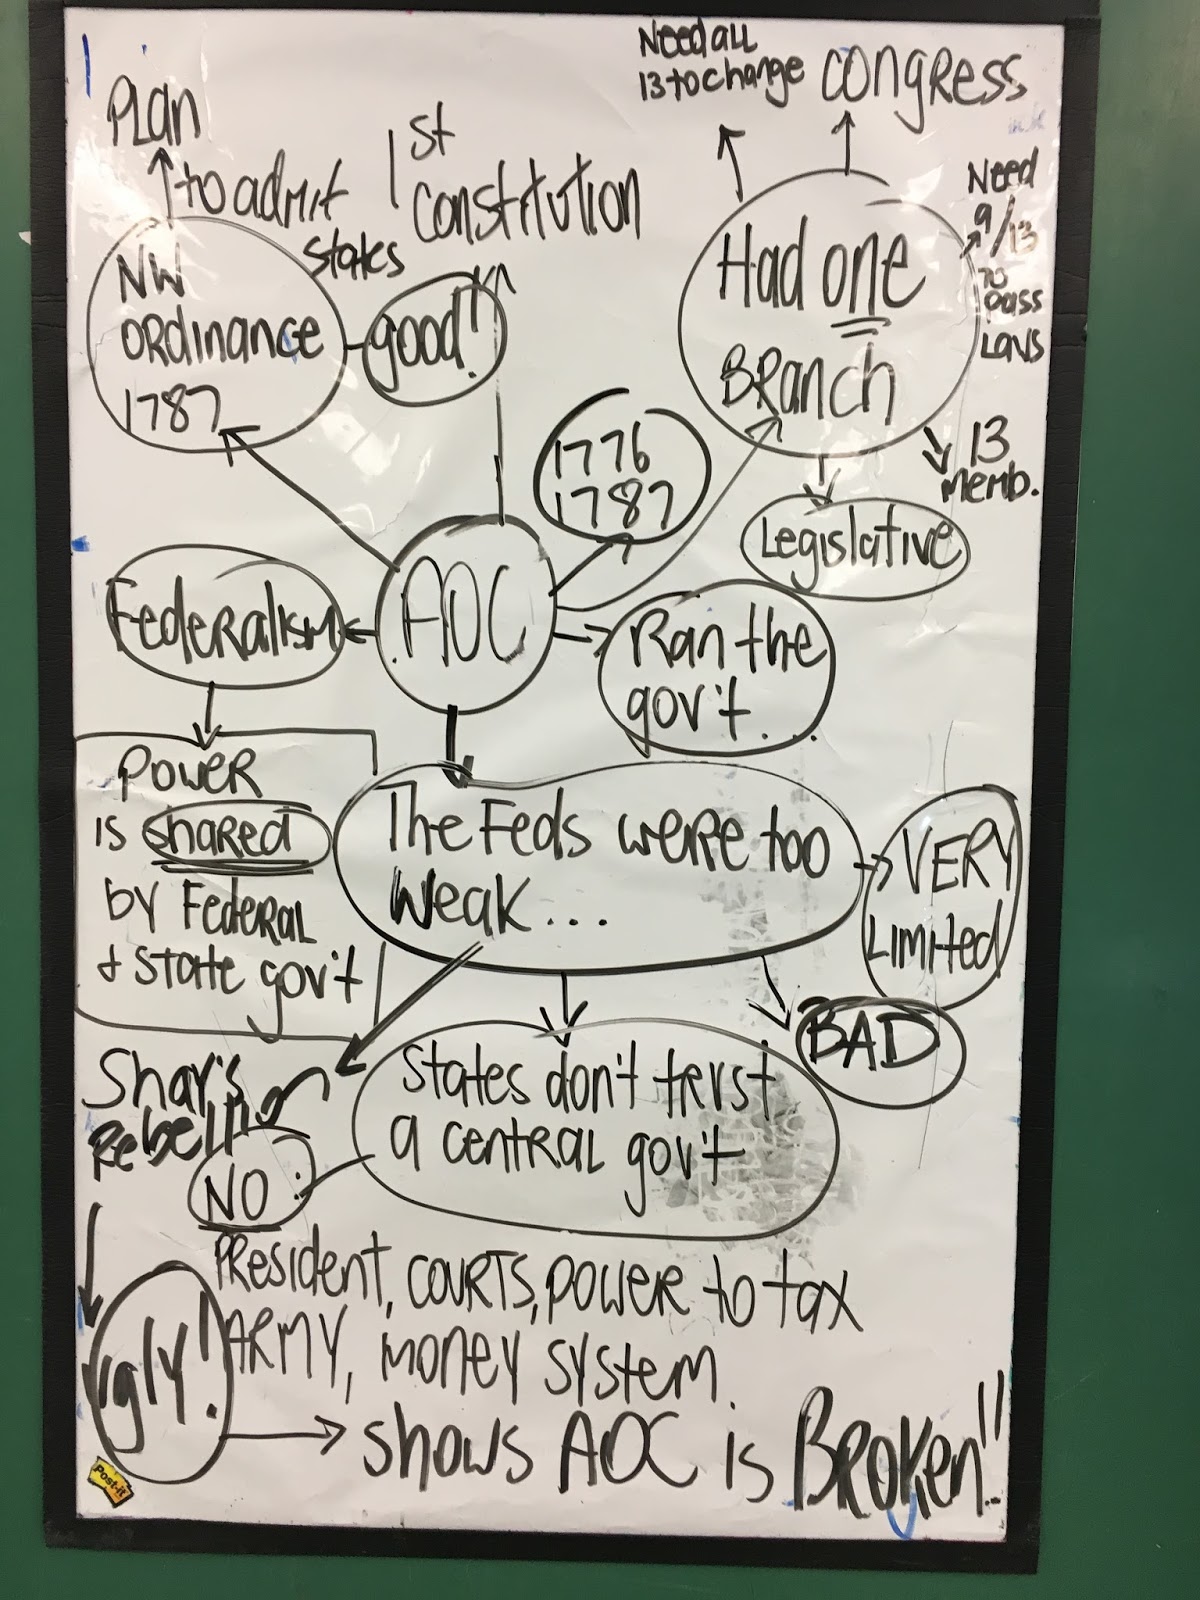 Need all
13 to change
CONGRESS
Plan
to admit
states
1st
constitution
Need
9/13
to
pass
Laws
NW
Ordinance
1787
good!
Had one
Branch
13
Memb.
1776
1787
Legislative
Federalism
AOC
Ran the
gov't...
Power
is shared
by Federal
+ State gov't
The Feds were too
weak...
VERY
Limited
BAD
States don't trust
a central gov't
Shay's
Rebellion
NO:
President, courts, power to tax
ARMY, money system.
ugly!
shows AOC is Broken!!
Post-it